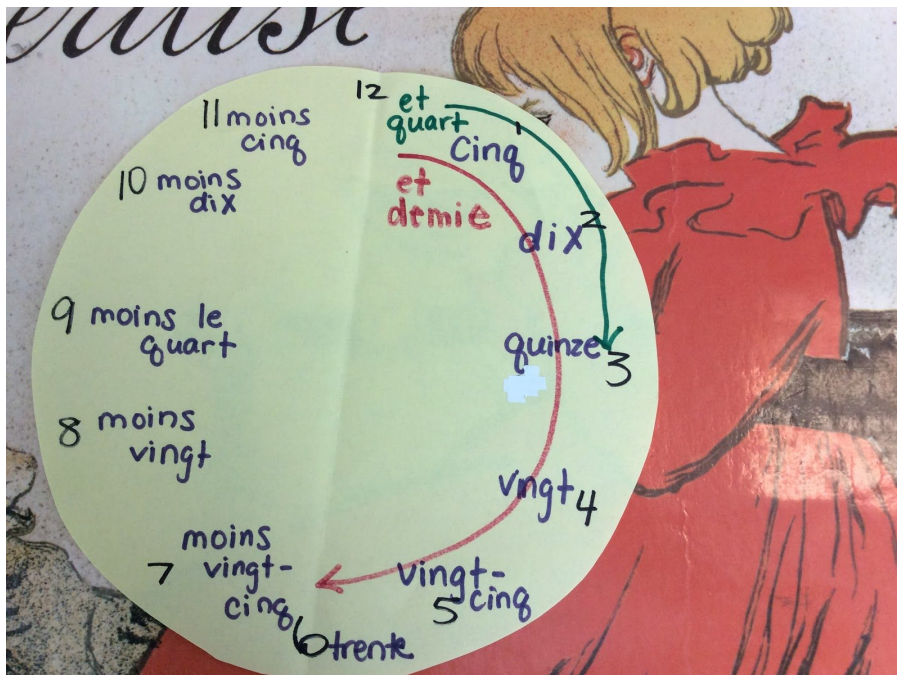 12 et
quart
1
Cinq
et
demie
dix 2
quinze
3
vngt 4
vingt-
5 cinq
6 trente
moins
7 vingt-
cinq
8 moins
vingt
9 moins le
quart
10 moins
dix
11 moins
cinq